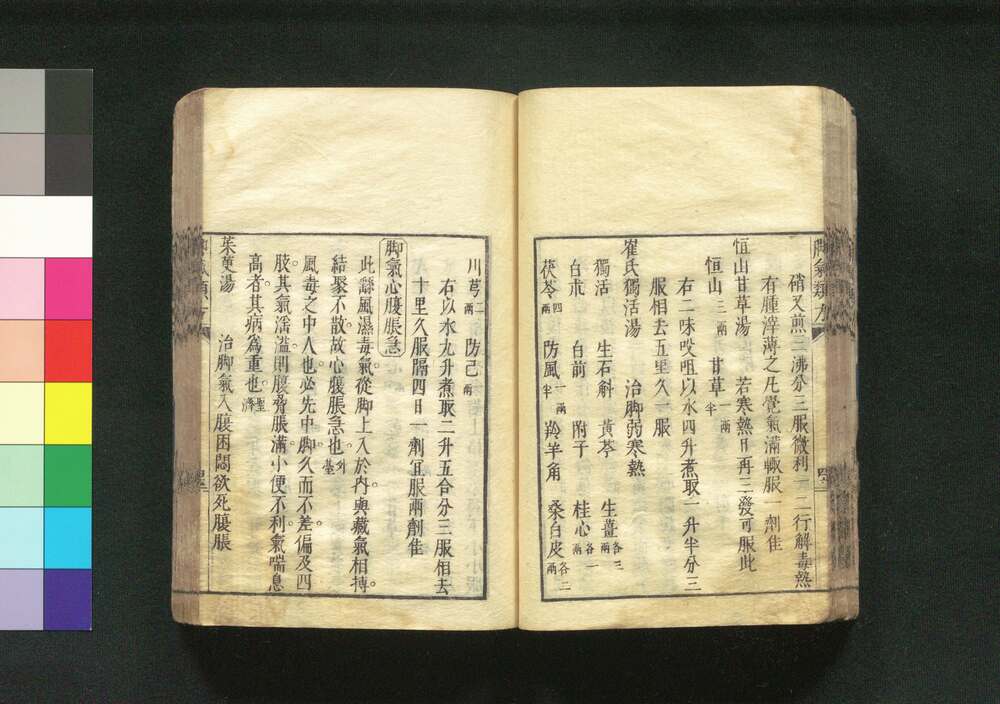 脚氣類方
硝又煎三沸分三服微利一二行解毒熱
有腫滓薄之凡覺氣滿輙服一劑佳
恒山甘草湯　若寒熱日再三發可服此
恒山三兩　甘草一兩半
右二味㕮咀以水四升煮取一升半分三
服相去五里久一服
崔氏獨活湯　治脚弱寒熱
獨活　生石斛　黃芩　生薑各三兩
白朮　白前　附子　桂心各一兩
茯苓四兩　防風一兩半　羚羊角　桑白皮各二兩
川芎二兩　防己兩
右以水九升煮取二升五合分三服相去
十里久服隔四日一劑宜服兩劑佳
脚氣心腹脹急
此繇風濕毒氣從脚上入於內與藏氣相摶
結聚不散故心腹脹急也外臺
風毒之中人也必先中脚久而不差偏及四
肢其氣滛濫則腹脅脹滿小便不利氣喘息
高者其病爲重也聖濟
茱萸湯　治脚氣入腹困悶欲死腹脹